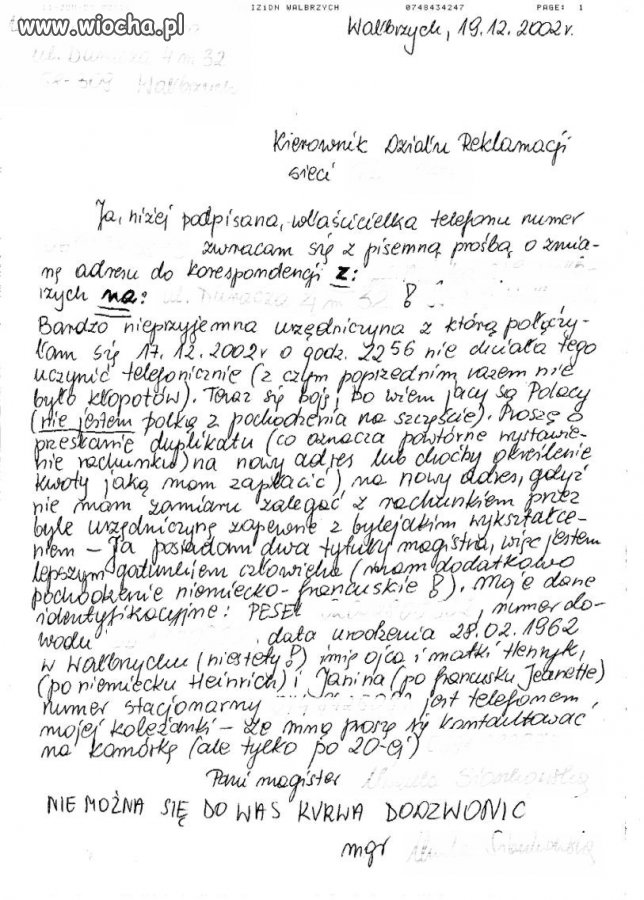 IZION WALBRZYCH 0748434247 PAGE: 1
www.wiocha.pl
Wałbrzych, 19.12.2002r.
ul. Dunacza 4 m 32
Wałbrzych
Kierownik Działu Reklamacji
sieci
Ja, niżej podpisana, właścicielka telefonu numer
zwracam się z pisemną prośbą o zmia-
nę adresu do korespondencji z:
iszych na: ul. Dunacza 4 m 32 !
Bardzo nieprzyjemna urzędniczyna z którą połączy-
łam się 17.12.2002r o godz. 22 56 nie chciała tego
uczynić telefonicznie (z czym poprzednim razem nie
było kłopotów). Teraz się boję, bo wiem jacy są Polacy
(nie jestem polką z pochodzenia na szczęście). Proszę o
przesłanie duplikatu (co oznacza powtórne wystawie-
nie rachunku) na nowy adres lub choćby określenie
kwoty jaką mam zapłacić) na nowy adres, gdyż
nie mam zamiaru zalegać z rachunkiem przez
byle urzędniczynę zapewne z bylejakim wykształce-
niem – Ja posiadam dwa tytuły magistra, więc jestem
lepszym gatunkiem człowieka (mam dodatkowo
pochodzenie niemiecko-francuskie !). Moje dane
identyfikacyjne: PESEL , numer do-
wodu data urodzenia 28.02.1962
w Wałbrzychu (niestety !) imię ojca i matki Henryk,
(po niemiecku Heinrich) i Janina (po francusku Jeanette)
numer stacjonarny jest telefonem
mojej koleżanki – ze mną proszę się kontaktować
na komórkę (ale tylko po 20-ej)
Pani magister
NIE MOŻNA SIĘ DO WAS KURWA DODZWONIC
mgr